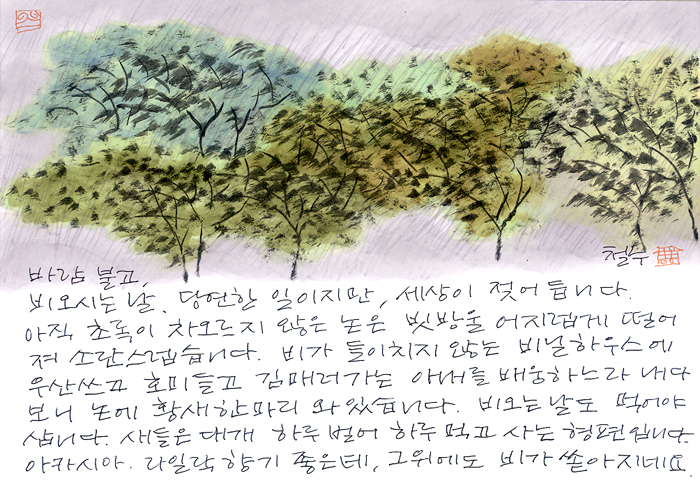 철수
바람 불고,
비오시는 날. 당연한 일이지만, 세상이 젖어 듭니다.
아직 초록이 차오르지 않은 논은 빗방울 어지럽게 떨어
져 소란스럽습니다. 비가 들이치지 않는 비닐하우스에
우산쓰고 호미들고 김매러가는 아내를 배웅하느라 내다
보니 논에 황새한마리 와있습니다. 비오는날도 먹어야
삽니다. 새들은 대개 하루 벌어 하루 먹고 사는 형편입니다.
아카시아. 라일락 향기 좋은데, 그위에도 비가 쏟아지네요.